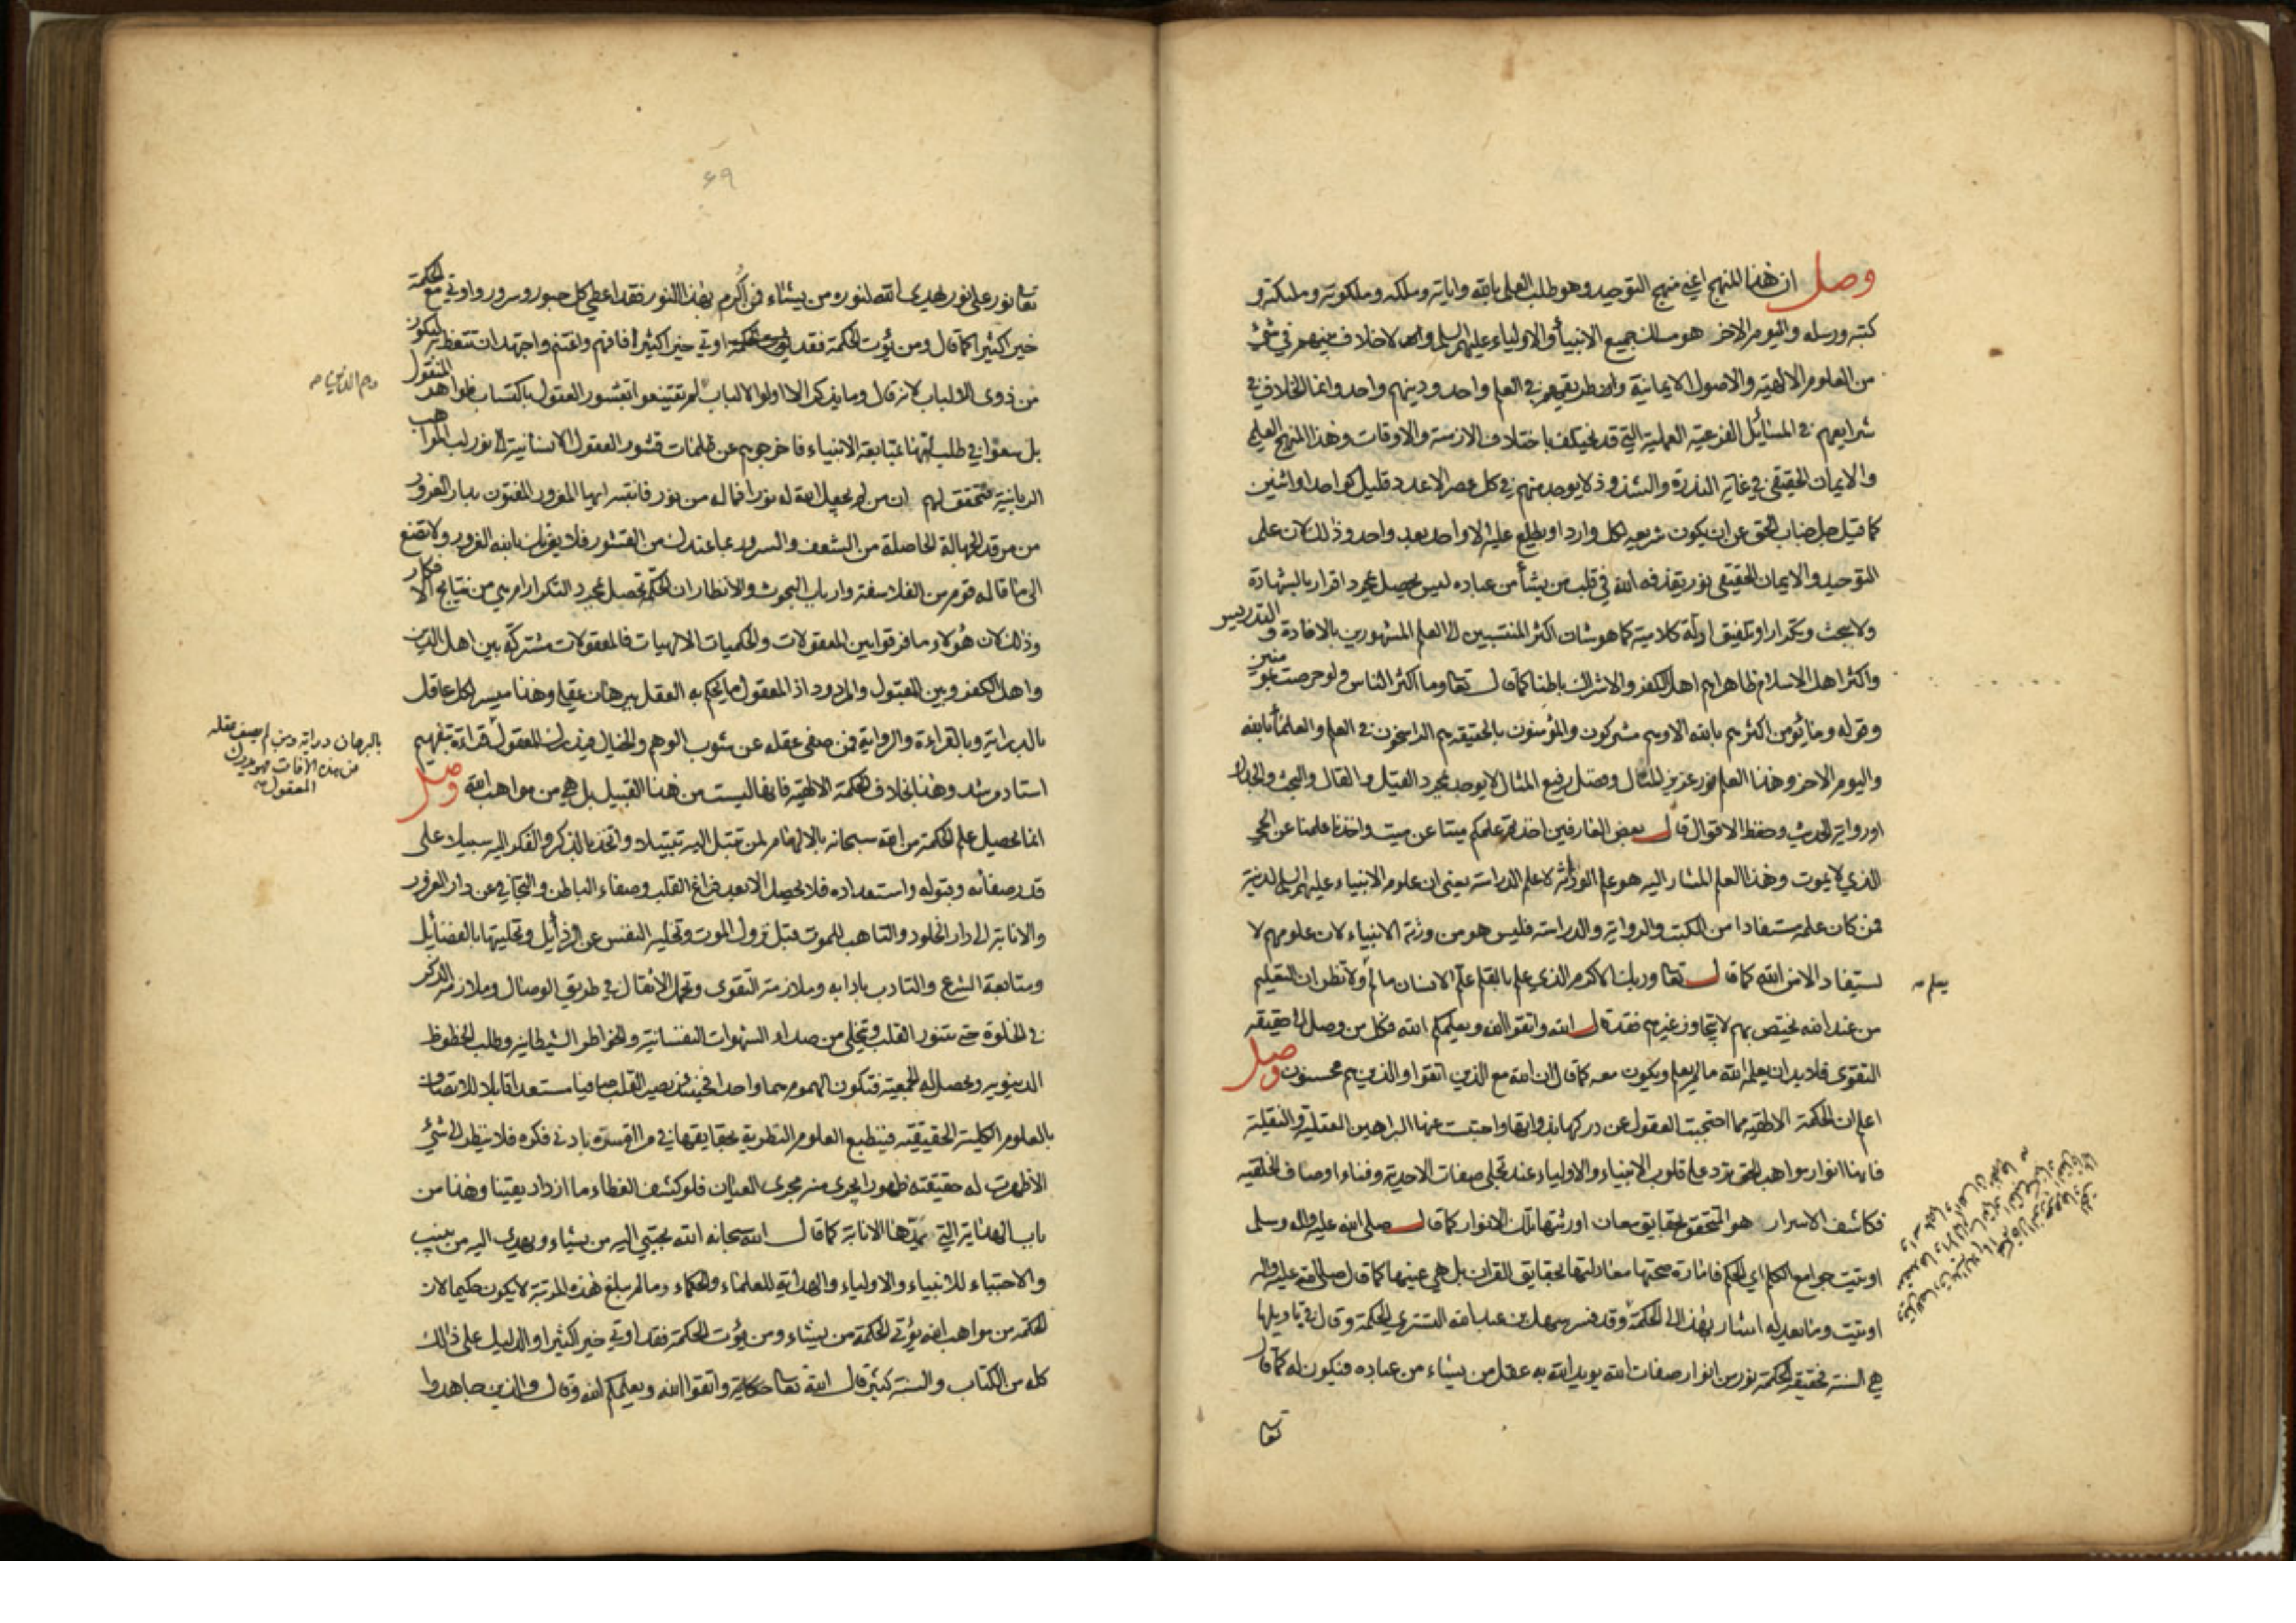 وصل ان هذا المنهج اعني منهج التوحيد وهو طلب العلم بالله واياته وملكه وملكوته وملئكته و
كتبه ورسله واليوم الاخر هو مسلك جميع الانبياء والاولياء عليهم السلم وانه لا خلاف بينهم في شئ
من العلوم الالهية والاصول الايمانية وان طريقهم في العلم واحد ودينهم واحد وانما الخلاف في
شرايعهم في المسائل الفرعية العملية التي قد تختلف باختلاف الازمنة والاوقات وهذا المنهج العلمي
والايمان الحقيقي في غاية الندرة والشذوذ لا يوجد منهم في كل عصر الا عدد قليل كواحد او اثنين
كما قيل جل جناب الحق عن ان يكون شريعة لكل وارد او يطلع عليه الا واحد بعد واحد وذلك لان علم
التوحيد والايمان الحقيقي نور يقذفه الله في قلب من يشأ من عباده ليس يحصل بمجرد اقرار بالشهادة
ولا بحث وتكرار او تلفيق ادلة كلامية كما هو شان اكثر المنتسبين الى العلم المشهورين بالافادة والتدريس
واكثر اهل الاسلام ظاهرا هم اهل الكفر والاشراك باطنا كما قال تعا وما اكثر الناس ولو حرصت بمؤمنين
وقوله وما يؤمن اكثرهم بالله الا وهم مشركون والمؤمنون بالحقيقة هم الراسخون في العلم والعلماء بالله
واليوم الاخر وهذا العلم نور عزيز المنال وفضل رفيع المثال لا يوجد بمجرد القيل والقال والبحث والجدال
او رواية الحديث وحفظ الاقوال قال بعض العارفين اخذتم علمكم ميتا عن ميت واخذنا علمنا عن الحي
الذي لا يموت وهذا العلم المشار اليه هو علم الوراثة لا علم الدراسة يعني ان علوم الانبياء عليهم السلم لدنية
فمن كان علمه مستفادا من الكتب والرواية والدراسة فليس هو من ورثة الانبياء لان علومهم لا
يستفاد الا من الله كما قال تعا وربك الاكرم الذي علم بالقلم علم الانسان ما لم ولا تظن ان التعليم
يعلم صه
من عند الله يختص بهم لا يتجاوز غيرهم فقد قال الله واتقوا الله ويعلمكم الله فكل من وصل الى حقيقة
التقوى فلا بد ان يعلمه الله ما لم يعلم ويكون معه كما قال ان الله مع الذين اتقوا والذين هم محسنون وصل
اعلم ان الحكمة الالهية مما احتجبت العقول عن دركها بذواتها واحتبست عنها البراهين العقلية والنقلية
فانها انوار مواهب الحق ترد على قلوب الانبياء والاولياء عند تجلي صفات الاحدية وفناء اوصاف الخلقية
فكاشف الاسرار هو المتحقق بحقايق معان اورثتها تلك الانوار كما قال صلى الله عليه واله وسلم
اوتيت جوامع الكلم اي الحكم فامارة صحتها معادلتها بحقايق القران بل هي عينها كما قال صلى الله عليه واله
اوتيت وما يعدله اشار بهذا الى الحكمة وقد فسر سهل بن عبد الله التستري الحكمة وقال في تاويلها
هي السنة فحقيقة الحكمة نور من انوار صفات الله يويد الله به عقل من يشاء من عباده فيكون له كما قال
تعا
۶۹
تعا نور على نور يهدي الله لنوره من يشاء فمن اكرم بهذا النور فقد اعطي كل حبور وسرور واوتي مع الحكمة
خيرا كثيرا كما قال ومن يؤت الحكمة فقد اوتي خيرا كثيرا فافهم واغتنم واجتهد ان تتعظ به لتكون
من ذوي الالباب لانه قال وما يذكر الا اولوا الالباب لم يقتنعوا بقشور العقول باكتساب ظواهر المنقول
وهم الذين صه
بل سعوا في طلب لبها بمتابعة الانبياء فاخرجوهم عن ظلمات قشور العقول الانسانية الى نور لب المواهب
الربانية فتحقق لهم ان من لم يجعل الله له نورا فما له من نور فانتبه ايها المغرور المفتون بدار الغرور
من مرقد الجهالة الحاصلة من الشعف والسرور بما عندك من القشور فلا يغرنك بالله الغرور ولا تصغ
الى ما قاله قوم من الفلاسفة وارباب البحوث والانظار ان الحكمة تحصل بمجرد التكرار او هي من نتايج الافكار
وذلك لان هؤلاء ما فرقوا بين المعقولات والحكميات الالهيات فالمعقولات مشتركة بين اهل الدين
واهل الكفر وبين المقبول والمردود اذ المعقول ما يحكم به العقل ببرهان عقلي وهذا ميسر لكل عاقل
بالدراية وبالقراءة والرواية فمن صفى عقله عن شوب الوهم والخيال فيدرك المعقول قراءة بتفهيم
بالبرهان دراية ومن لم يصف عقله
من هذه الافات فهو يدرك
المعقول صه
استاد مرشد وهذا بخلاف الحكمة الالهية فانها ليست من هذا القبيل بل هي من مواهب الله وصل
انما تحصيل علم الحكمة من الله سبحانه بالالهام لمن تبتل اليه تبتيلا واتخذ بالذكر والفكر اليه سبيلا على
قدر صفائه وقبوله واستعداده فلا يحصل الا بعد فراغ القلب وصفاء الباطن والتجافي عن دار الغرور
والانابة الى دار الخلود والتاهب للموت قبل نزول الموت وتخلية النفس عن الرذايل وتحليتها بالفضائل
ومتابعة الشرع والتادب بادابه وملازمة التقوى وتحمل الاثقال في طريق الوصال وملازمة الذكر
في الخلوة حتى يتنور القلب ويتخلى من صداء الشهوات النفسانية والخواطر الشيطانية وطلب الحظوظ
الدنيوية ويحصل له الجمعية فتكون الهموم هما واحدا فحينئذ يصير القلب صافيا مستعدا قابلا للانتقاش
بالعلوم الكلية الحقيقية فينطبع العلوم النظرية بحقايقها في مراة سره بادنى فكره فلا ينظر الى شئ
الا ظهرت له حقيقته ظهورا يجري منه مجرى العيان فلو كشف الغطاء ما ازداد يقينا وهذا من
باب الهداية التي تمدها الانابة كما قال الله سبحانه الله يجتبي اليه من يشاء ويهدي اليه من ينيب
والاجتباء للانبياء والاولياء والهداية للعلماء والحكماء وما لم يبلغ هذه المرتبة لا يكون حكيما لان
الحكمة من مواهب الله يؤتي الحكمة من يشاء ومن يؤت الحكمة فقد اوتي خيرا كثيرا والدليل على ذلك
كله من الكتاب والسنة كثير قال الله تعا حكاية واتقوا الله ويعلمكم الله وقال والذين جاهدوا